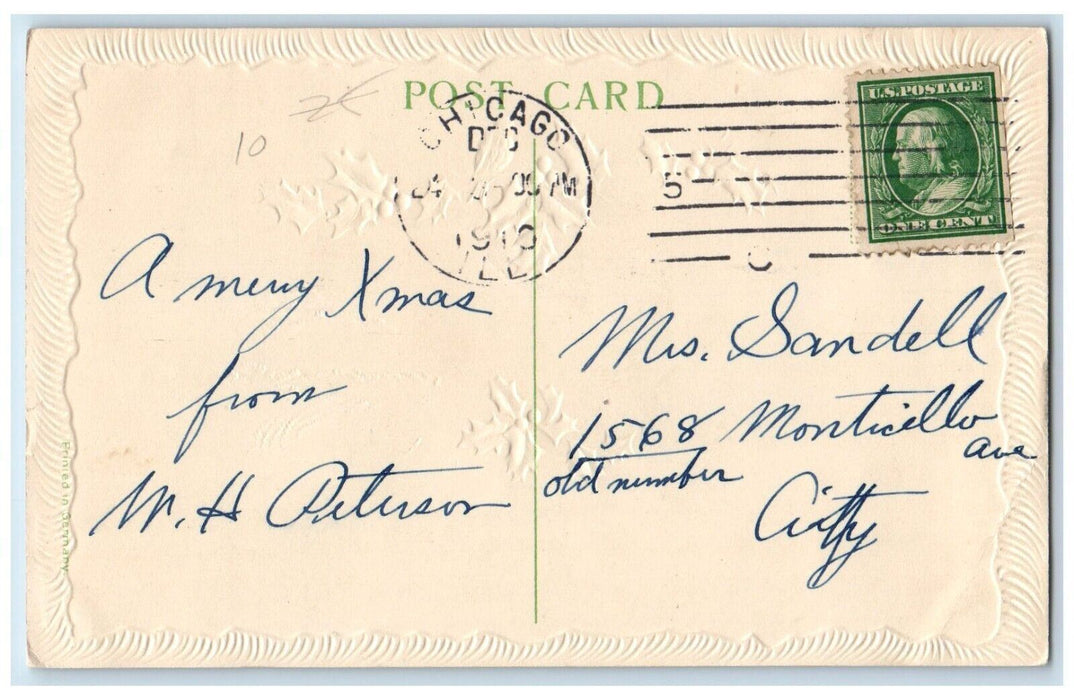 POST CARD
10
CHICAGO
DEC
24 00 PM
1910
ILL.
5
C
U.S. POSTAGE
ONE CENT
A merry Xmas
from
W. H Peterson
Mrs. Sandell
1568 Monticello
ave
old number
City
Printed in Germany